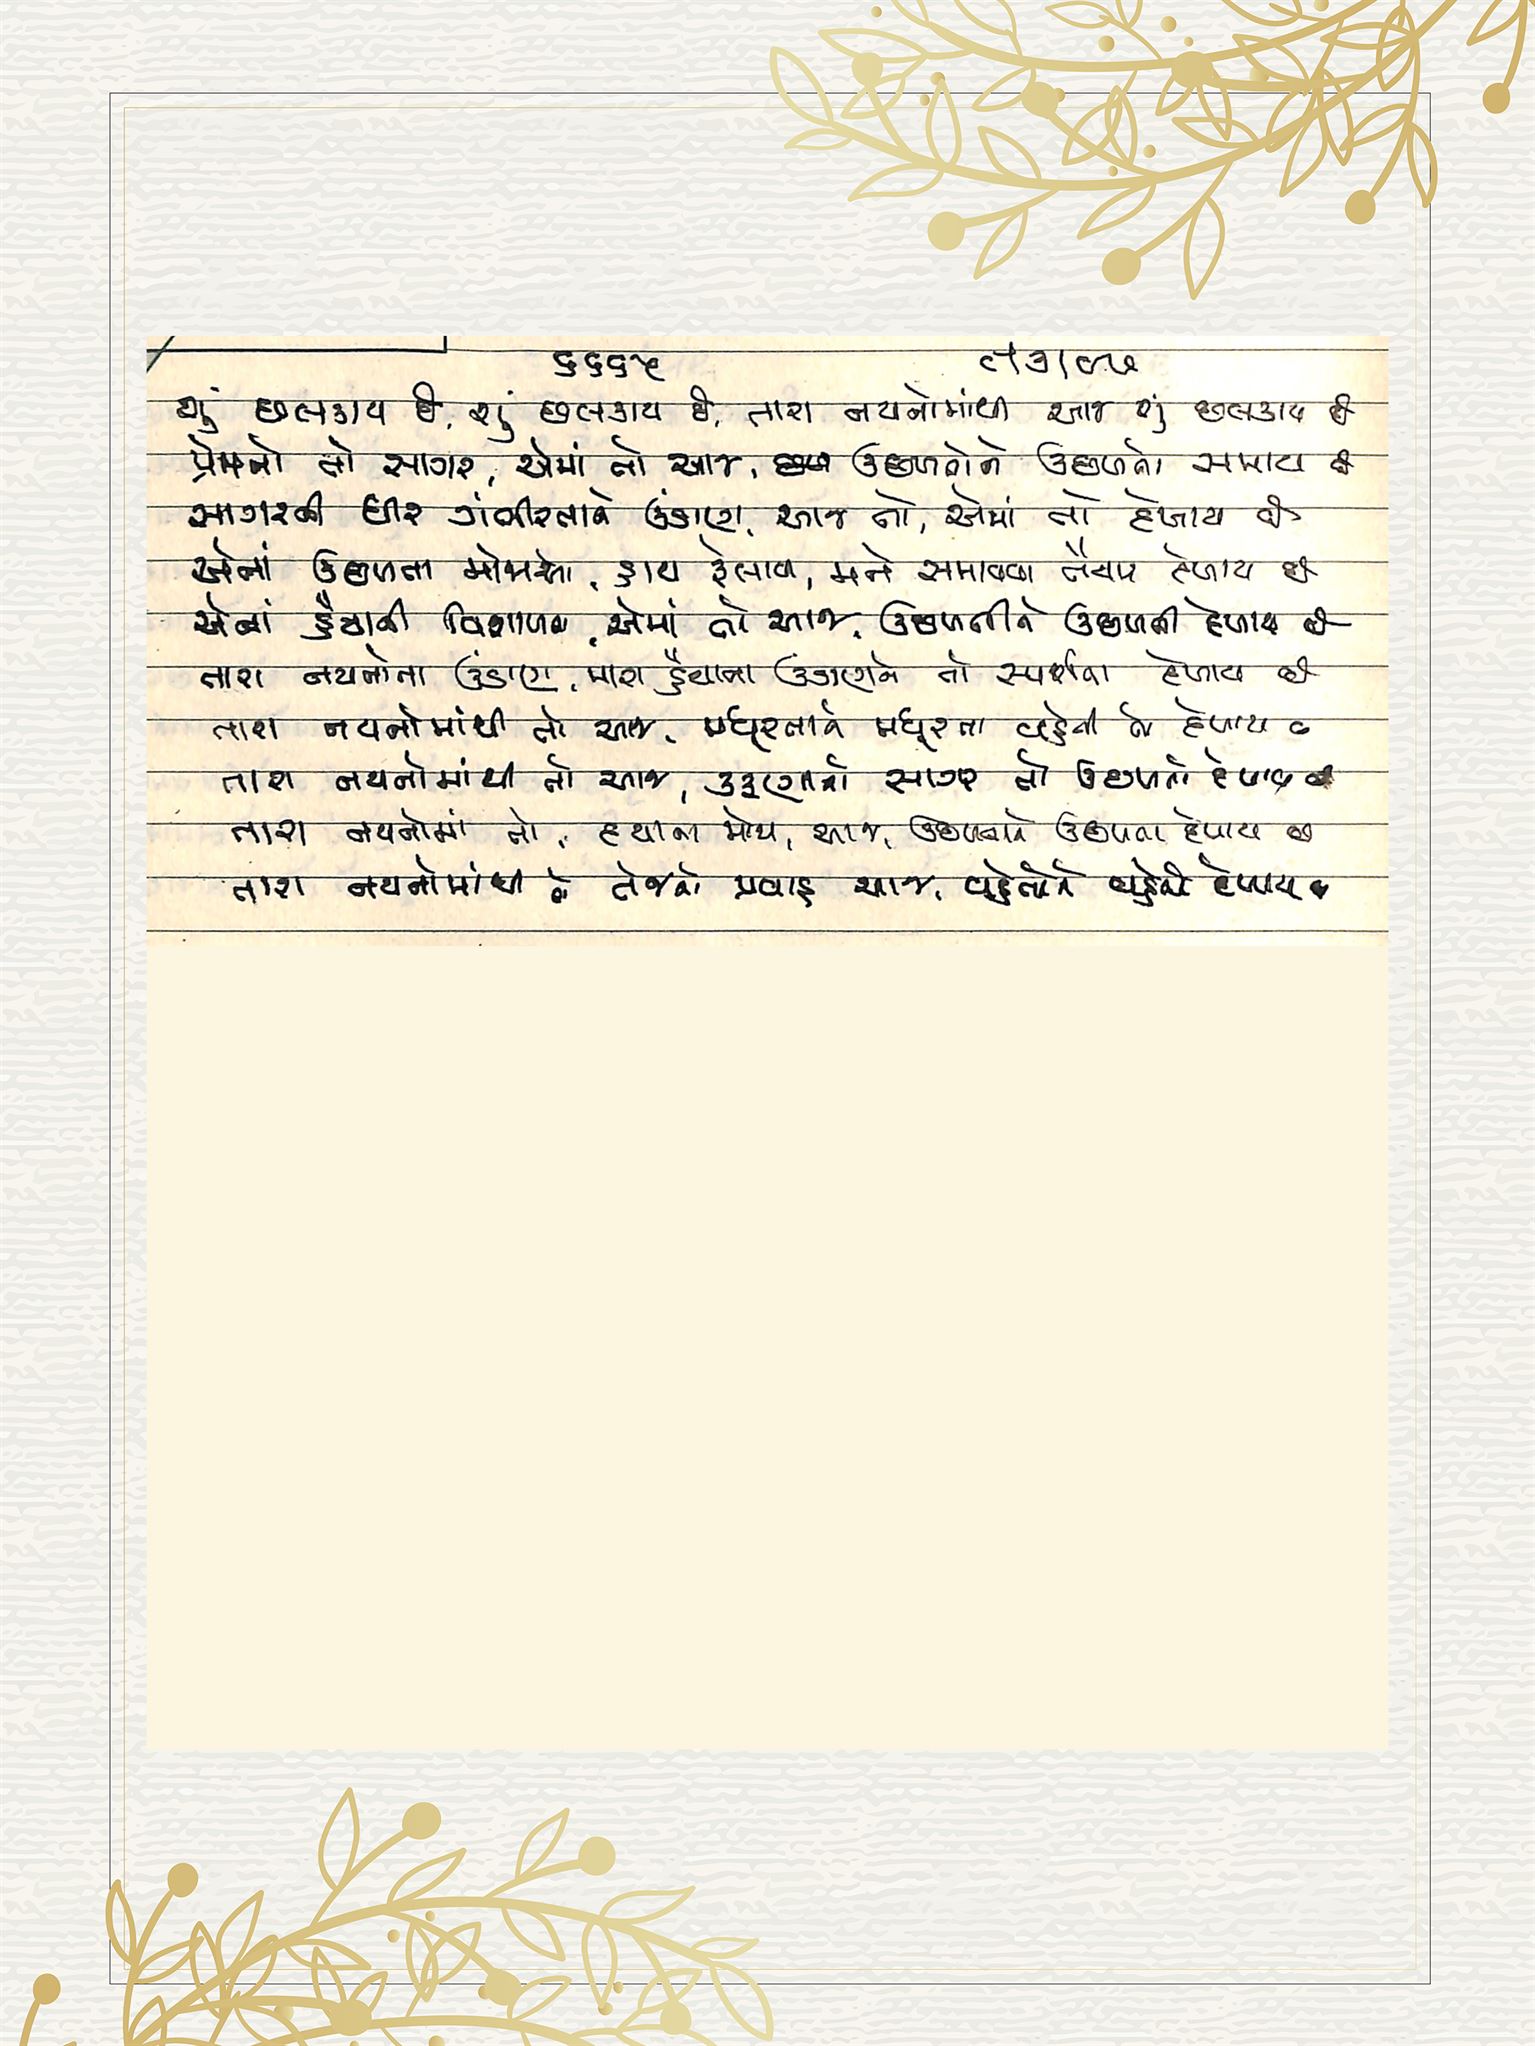 ૬૬૬૫
શું છલકાય છે, શું છલકાય છે, તારા નયનોમાંથી આજ શું છલકાય છે
પ્રેમનો તો સાગર, એમાં તો આજ, ઉછળતોને ઉછળતો સમાય છે
સાગરની ધીર ગંભીરતાને ઉંડાણ, આજ તો, એમાં તો દેખાય છે
એનાં ઉછળતા મોજાઓ, હાથ ફેલાવી, મને સમાવવા તૈયાર દેખાય છે
એનાં હૈયાની વિશાળતા, એમાં તો આજ, ઉછળતીને ઉછળતી દેખાય છે
તારા નયનોના ઉંડાણ, મારા હૈયાના ઉંડાણને તો સ્પર્શતા દેખાય છે
તારા નયનોમાંથી તો આજ, મધુરતાને મધુરતા વહેતી દેખાય છે
તારા નયનોમાંથી તો આજ, કરૂણાનો સાગર તો ઉછળતો દેખાય છે
તારા નયનોમાં તો, દયાના મોજા, આજ, ઉછળતાને ઉછળતા દેખાય છે
તારા નયનોમાંથી તેજનો પ્રવાહ આજ, વહેતોને વહેતો દેખાય છે